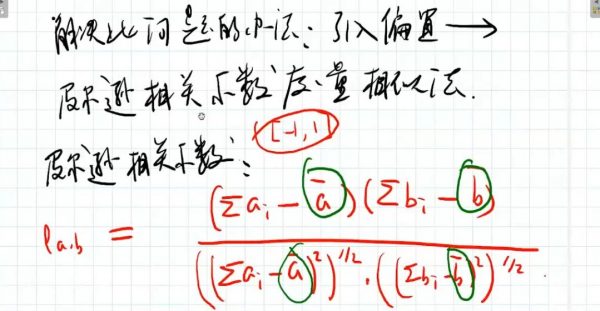 解决此问题的办法：引入偏置 →
皮尔逊相关系数度量相似法.
[-1, 1]
皮尔逊相关系数：
ρa,b = (Σai - ā)(Σbi - b̄) / ((Σai - ā)²)^1/2 · ((Σbi - b̄)²)^1/2